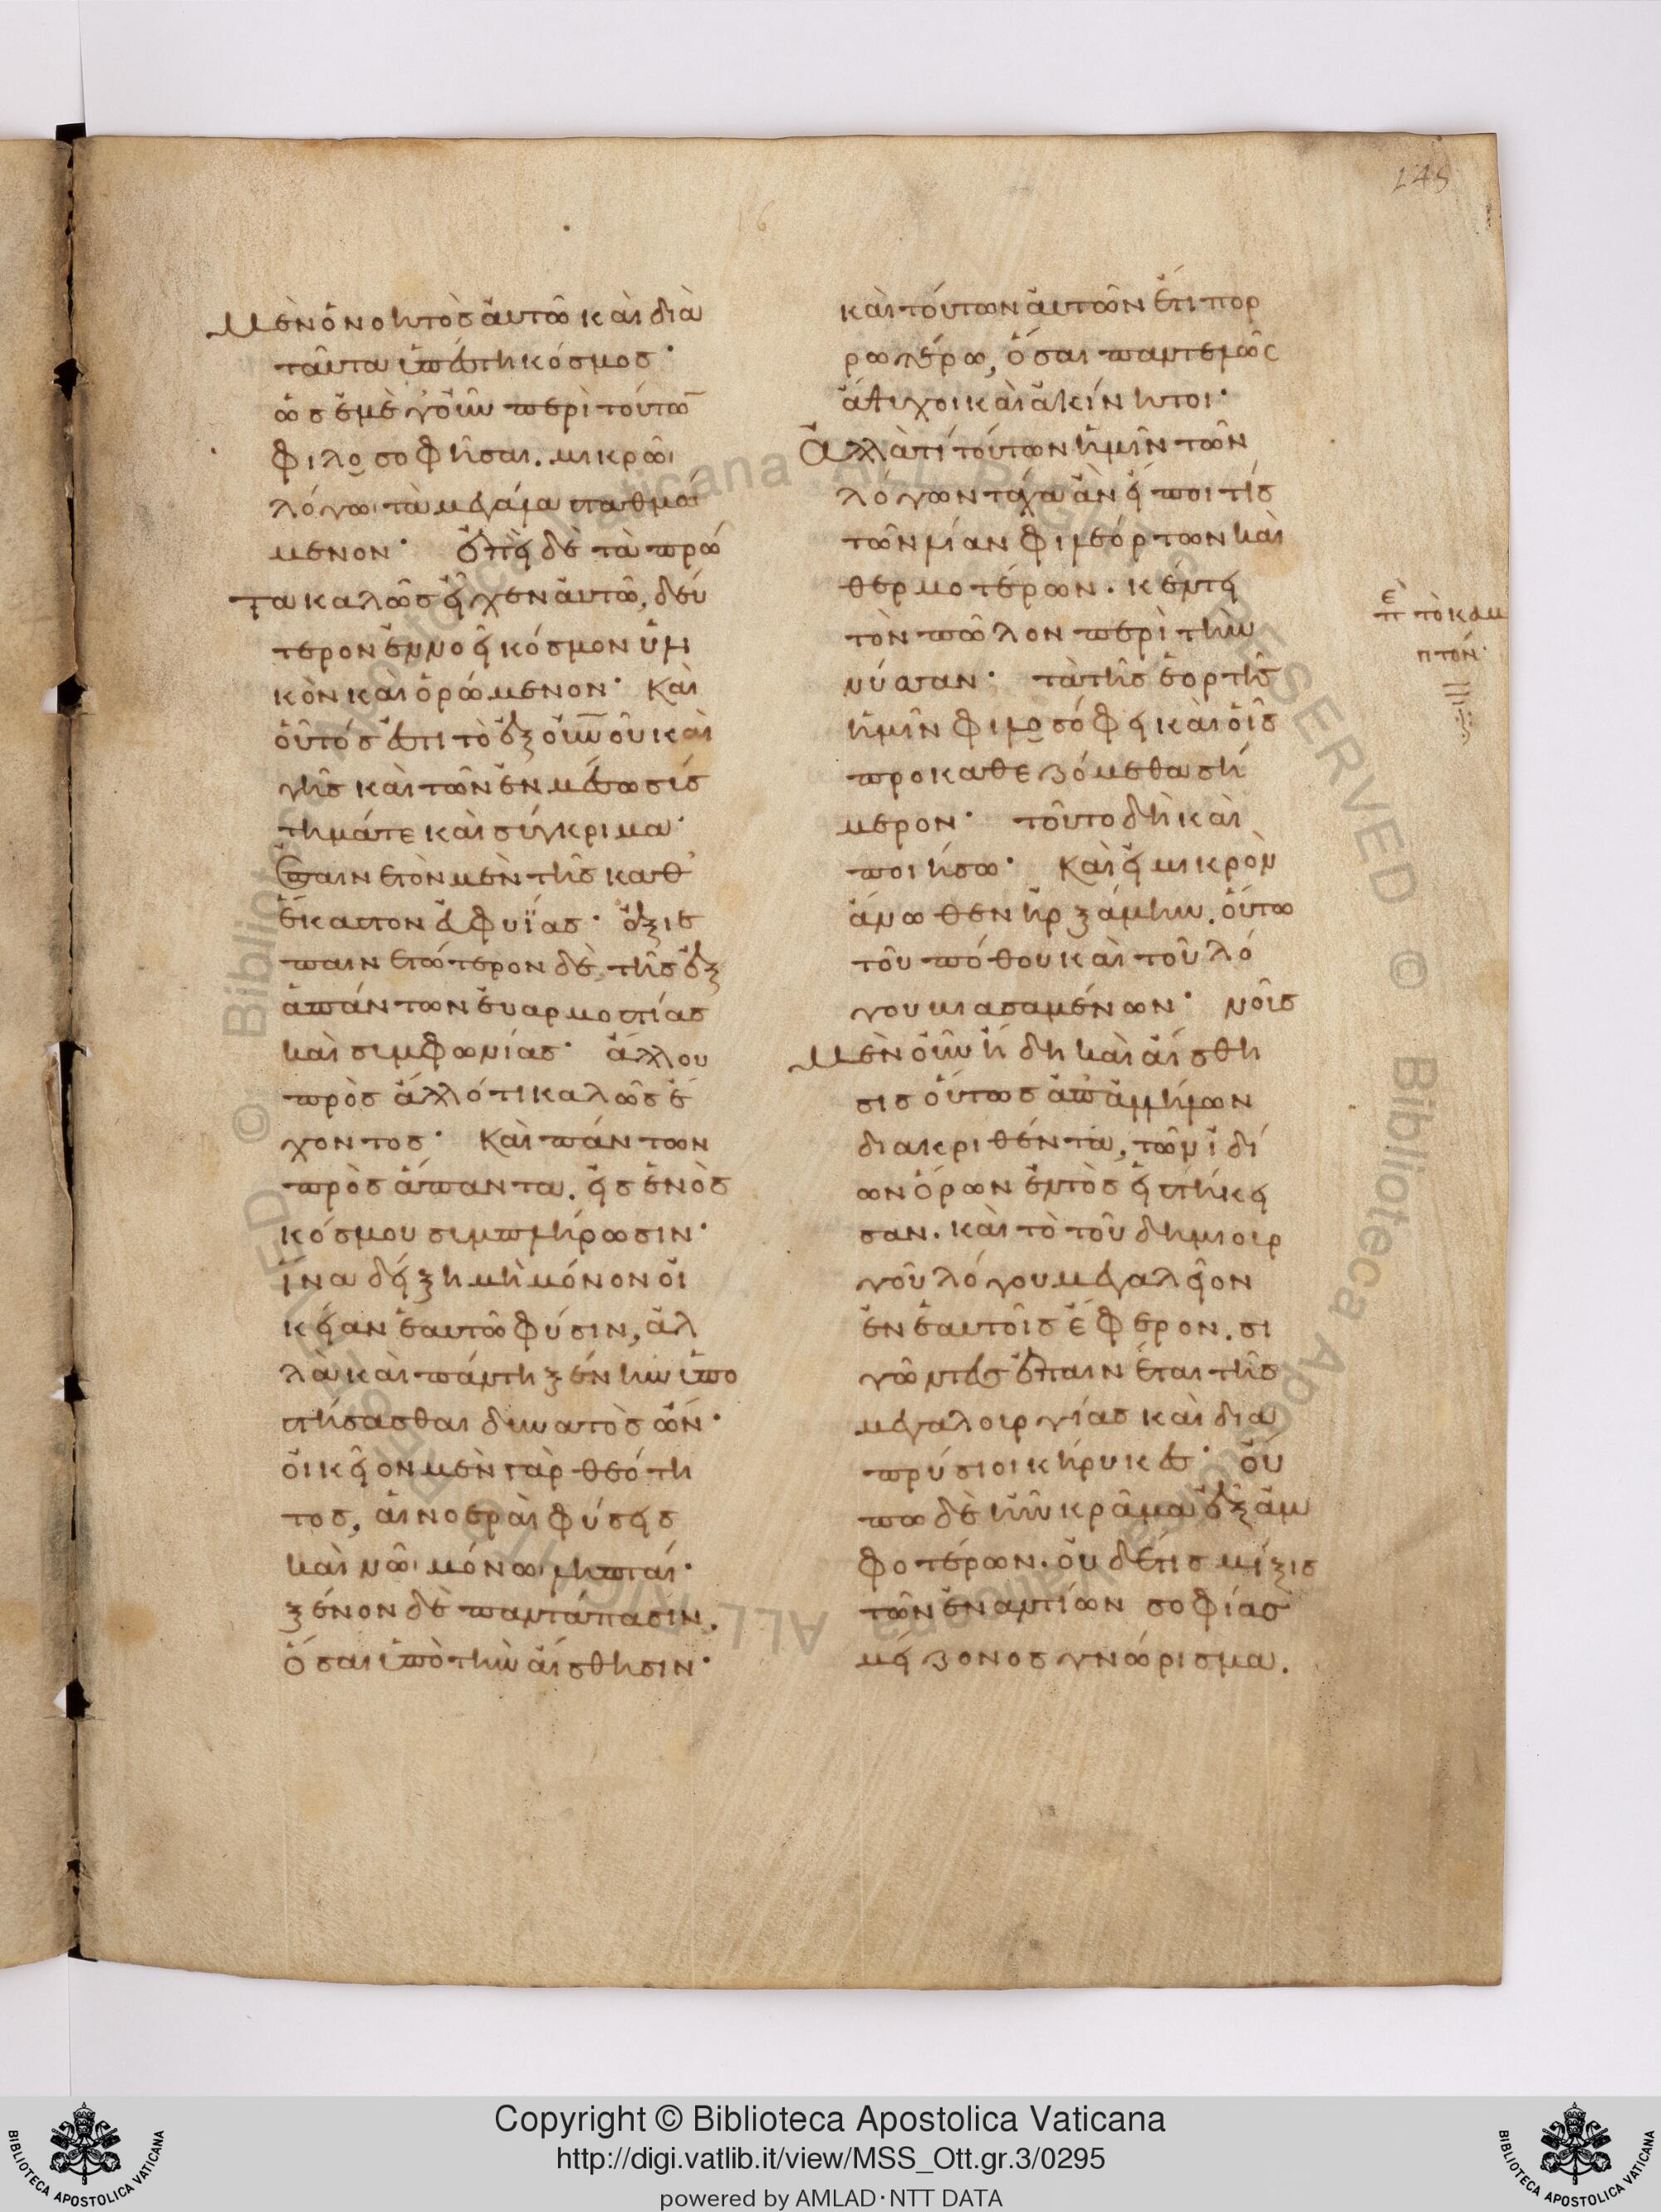 148
16
μὲν ὁ νοητὸς αὐτῶ καὶ διὰ
ταῦτα ὑπέστη κόσμος·
ὡς ἐμὲ γοῦν περὶ τούτω̅
φιλοσοφῆσαι. μικρῶι
λόγωι τὰ μεγάλα σταθμώ
μενον· ἐπεὶ δὲ τὰ πρῶ
τα καλῶς εἶχεν αὐτῶ, δεύ
τερον ἐννοεῖ κόσμον ὑλι
κὸν καὶ ὁρώμενον· Καὶ
οὗτός ἐστι τὸ ἐξ οὐνου καὶ
γῆς καὶ τῶν ἐν μέσω σύσ
τημά τε καὶ σύγκριμα·
ἐπαινετὸν μὲν τῆς καθ'
ἕκαστον εὐφυΐας· ἀξιε
παινετώτερον δὲ, τῆς ἐξ
ἁπάντων εὐαρμοστίας
καὶ συμφωνίας· ἄλλου
πρὸς ἄλλό τι καλῶς ἔ
χοντος· Καὶ πάντων
πρὸς ἅπαντα. εἰς ἑνὸς
κόσμου συμπλήρωσιν·
ἵνα δείξη μὴ μόνον οἰ
κείαν ἑαυτῶ φύσιν, ἀλ
λὰ καὶ πάντη ξένην ὑπο
στήσασθαι δυνατὸς ὤν·
οἰκεῖον μὲν γὰρ θεότη
τος, αἱ νοεραὶ φύσεις
καὶ νῶι μόνωι ληπταί·
ξένον δὲ παντάπασιν.
ὅσαι ὑπὸ τὴν αἴσθησιν·
καὶ τούτων αὐτῶν ἔτι πορ
ρωτέρω, ὅσαι παντελῶς
ἄψυχοι καὶ ἀκίνητοι·
Ἀλλὰ τί τούτων ἡμῖν τῶν
λόγων τάχα ἂν εἴποι τίς
τῶν λίαν φιλεόρτων καὶ
θερμοτέρων. κέντει
τὸν πῶλον περὶ τὴν
νύσσαν· τὰ τῆς ἑορτῆς
ἡμῖν φιλοσόφει καὶ οἷς
προκαθεζόμεθα σή
μερον· τοῦτο δὴ καὶ
ποιήσω· Καὶ εἰ μικρὸν
ἄνωθεν ἠρξάμην. οὕτω
τοῦ πόθου καὶ τοῦ λό
γου βιασαμένων· νοῦς
μὲν οὖν ἤδη καὶ αἴσθη
σις οὕτως ἀπ' ἀλλήλων
διακριθέντα, τῶν ἰδί
ων ὅρων ἐντὸς εἱστήκει
σαν. καὶ τὸ τοῦ δημιουρ
γοῦ λόγου μεγαλεῖον
ἐν ἑαυτοῖς ἔφερον. σι
γῶντες ἐπαινέται τῆς
μεγαλουργίας καὶ δια
πρύσιοι κήρυκες· οὔ
πω δὲ ἦν κρᾶμα ἐξ ἀμ
φοτέρων. οὐδέ τις μίξις
τῶν ἐναντίων σοφίας
μείζονος γνώρισμα.
τὸ καμ
πτόν·
Copyright © Biblioteca Apostolica Vaticana
http://digi.vatlib.it/view/MSS_Ott.gr.3/0295
powered by AMLAD·NTT DATA
BIBLIOTECA APOSTOLICA VATICANA
BIBLIOTECA APOSTOLICA VATICANA